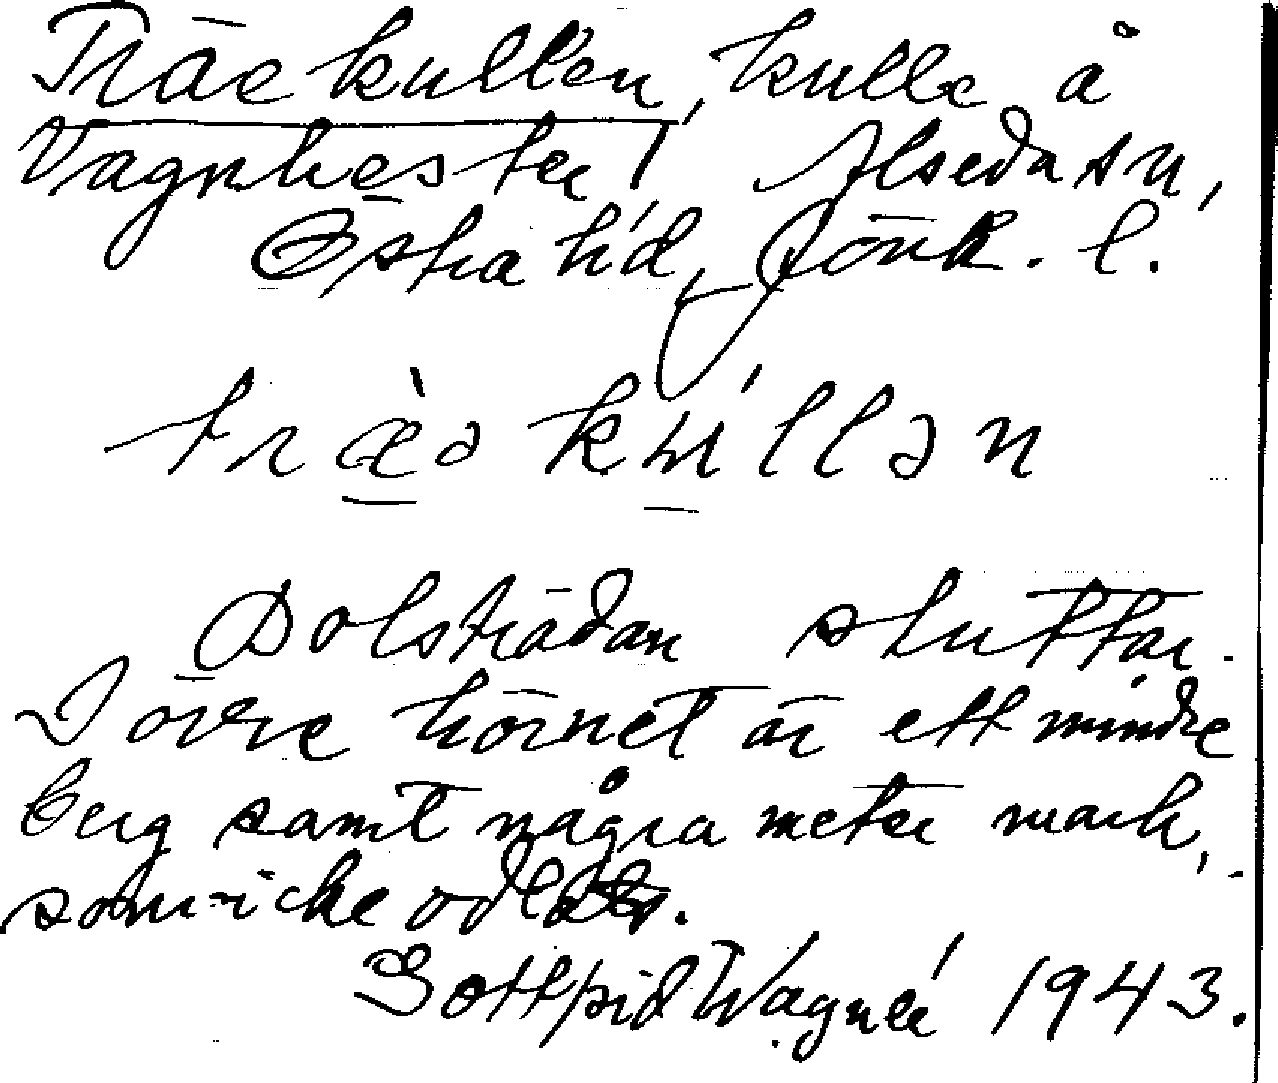 Träekullen, kulle å
Vagnhester, Alseda sn,
Östra hd, Jönk. l.
træ̀əkúllən
Dolsträdan sluttar.
I övre hörnet är ett mindre
berg samt några meter mark,
som icke odlats.
Gottfrid Wagnér 1943.